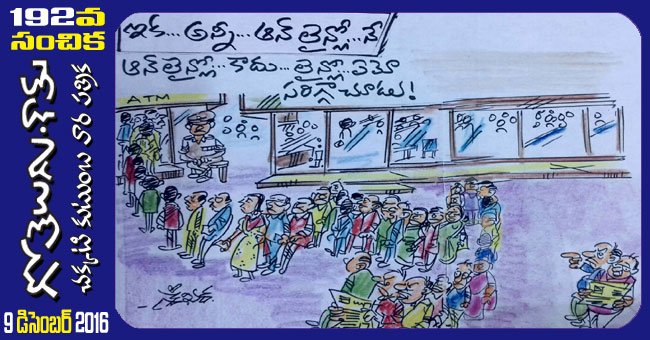 192వ
సంచిక
గోతెలుగు.కామ్
చక్కటి కుటుంబ వార పత్రిక
9 డిసెంబర్ 2016
ఇక... అన్నీ... ఆన్ లైన్లో... నే
ఆన్ లైన్లో... కాదు... లైన్లో ఏమో
సరిగ్గా చూడు!
ATM